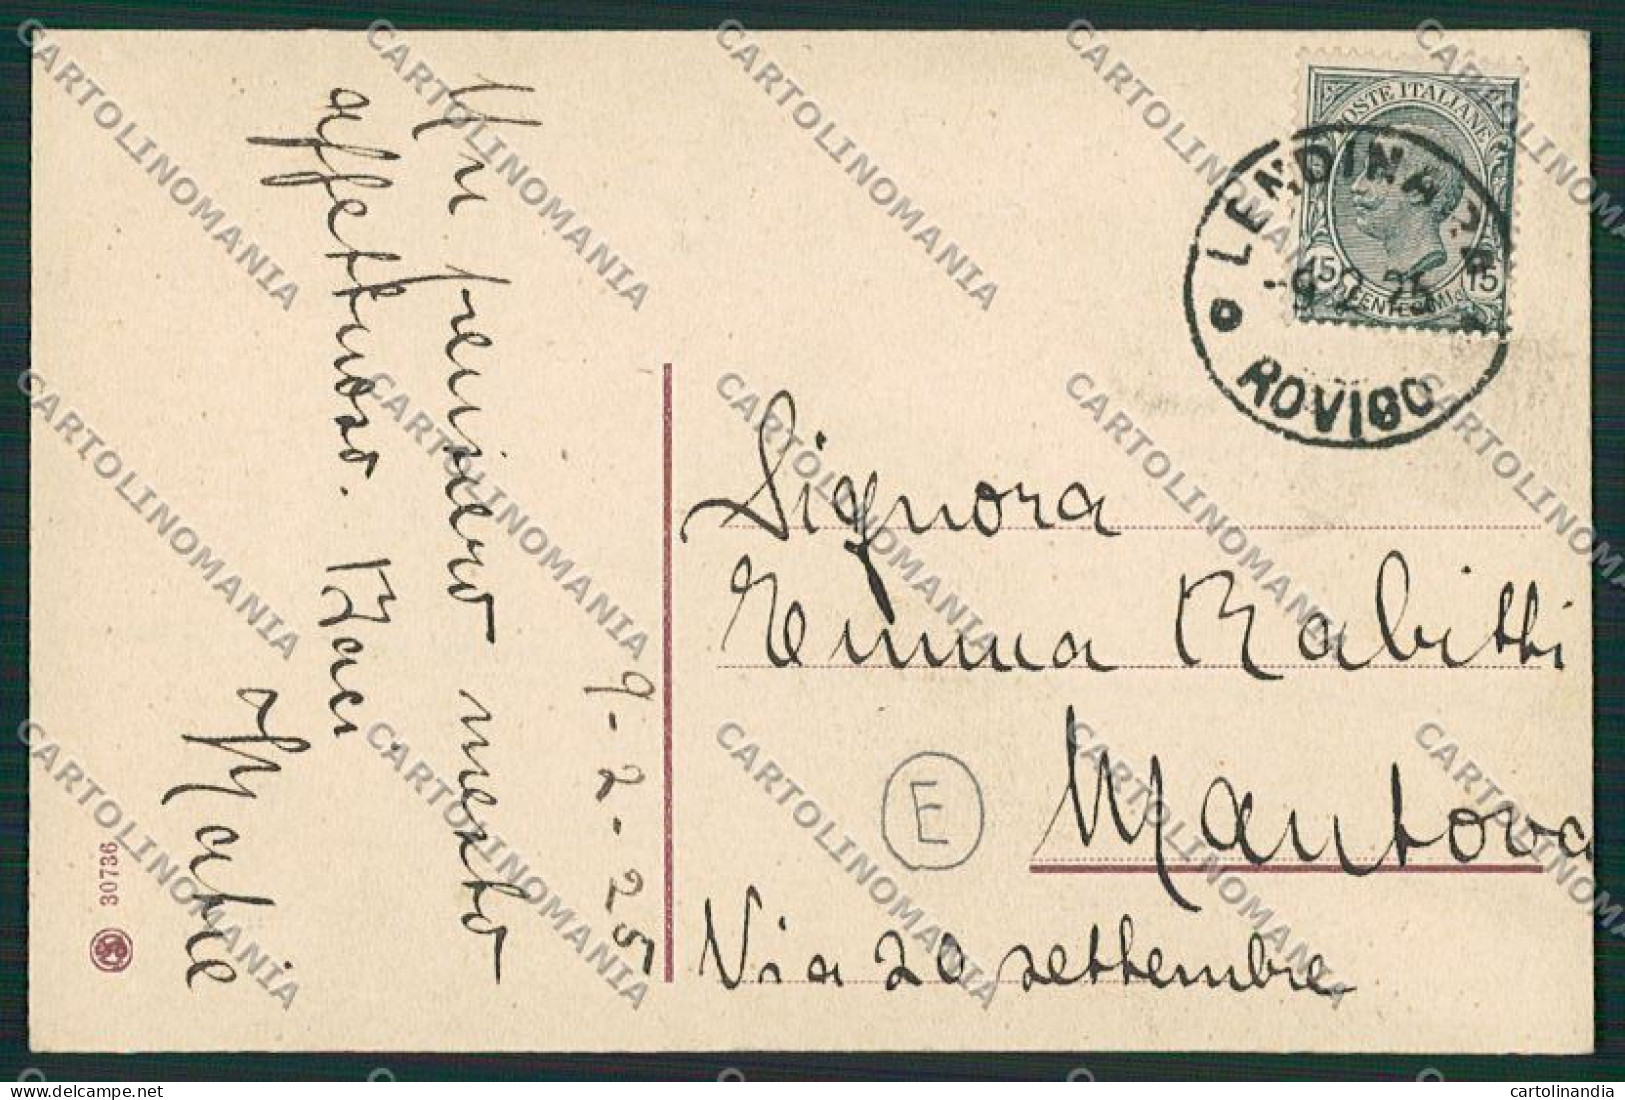 POSTE ITALIANE
15 15
CENTESMI
LENDINARA
-9.2.25
ROVIGO
Un pensiero mesto
affettuoso. Baci
9-2-25
Signora
Emma Rabitti
Mantova
Via 20 settembre
E
30736
CARTOLINOMANIA
cartolinomania.it (C)
cartolinandia